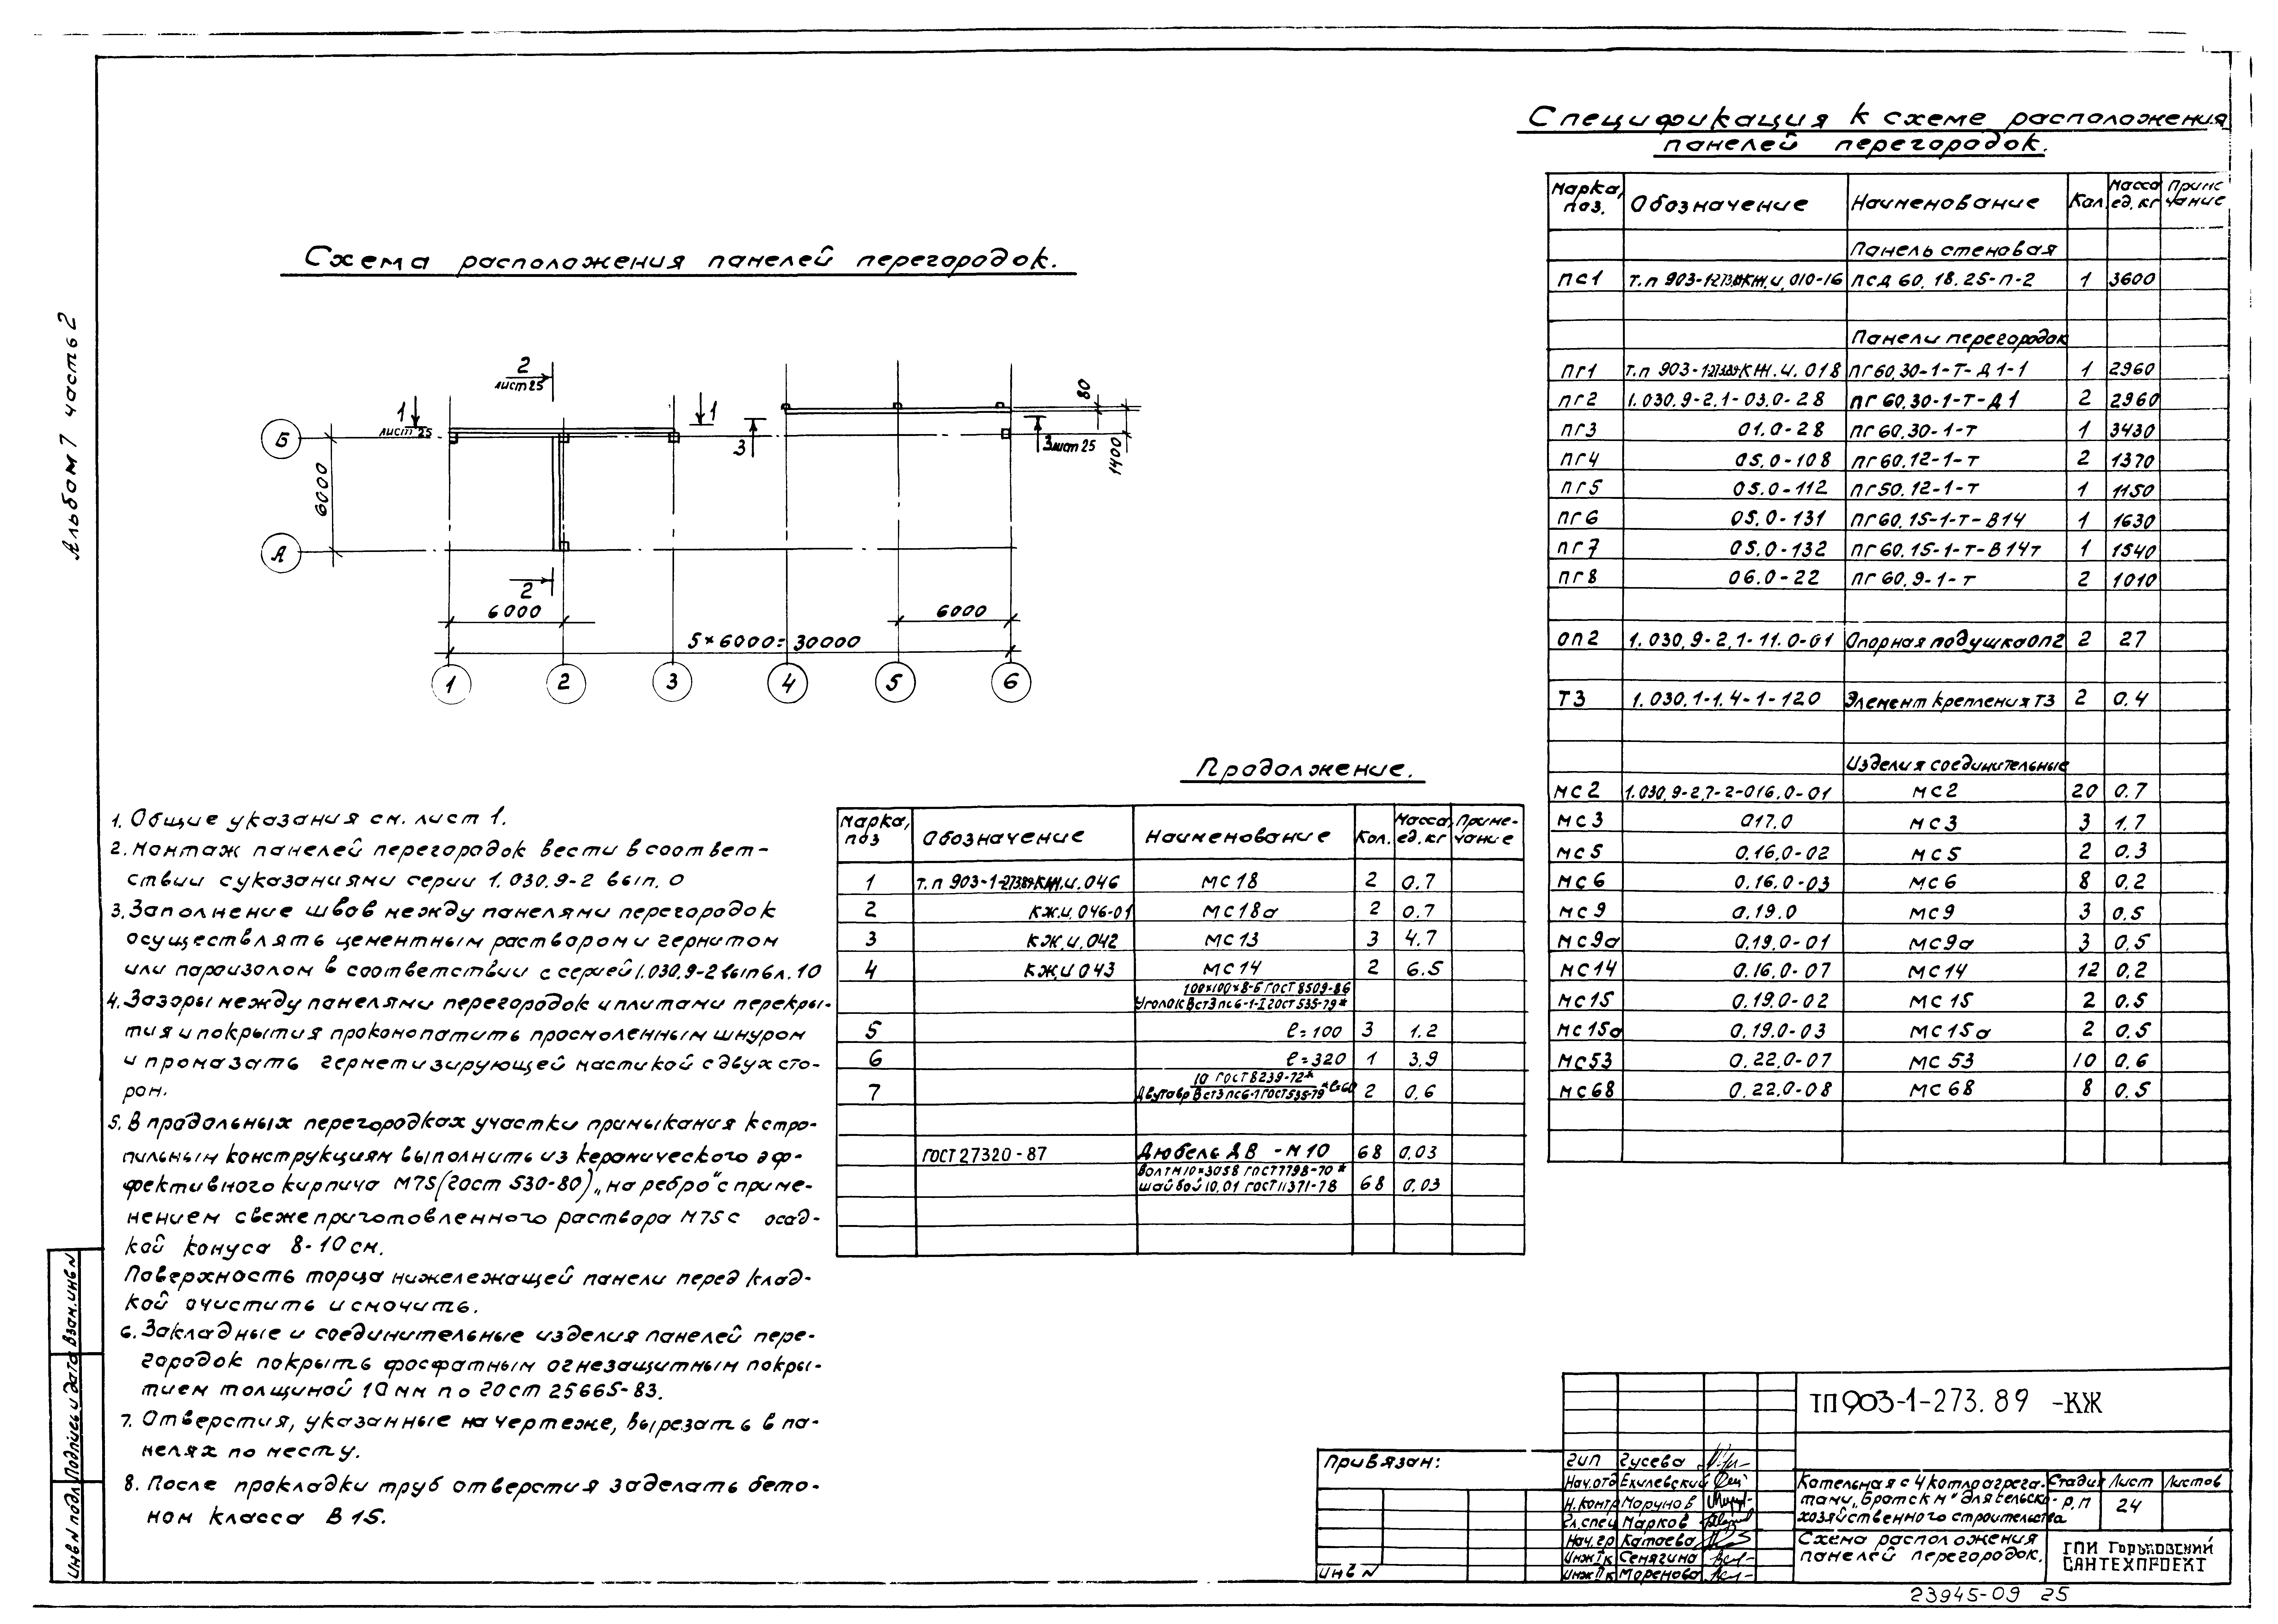 Альбом 7 часть 2
Схема расположения панелей перегородок.
2
лист 25
1
лист 25
1
3
3 лист 25
80
1400
Б
А
6000
2
6000
6000
5×6000=30000
1 2 3 4 5 6
1. Общие указания см. лист 1.
2. Монтаж панелей перегородок вести в соответ-
ствии с указаниями серии 1.030.9-2 вып. 0
3. Заполнение швов между панелями перегородок
осуществлять цементным раствором и гернитом
или пароизолом в соответствии с серией 1.030.9-2 вып 10
4. Зазоры между панелями перегородок и плитами перекры-
тия и покрытия проконопатить просмоленным шнуром
и промазать герметизирующей мастикой с двух сто-
рон.
5. В продольных перегородках участки примыкания к стро-
пильным конструкциям выполнить из керамического эф-
фективного кирпича М75 (гост 530-80) „на ребро" с приме-
нением свежеприготовленного раствора М75 с осад-
кой конуса 8-10 см.
Поверхность торца нижележащей панели перед клад-
кой очистить и смочить.
6. Закладные и соединительные изделия панелей пере-
городок покрыть фосфатным огнезащитным покры-
тием толщиной 10 мм по гост 25665-83.
7. Отверстия, указанные на чертеже, вырезать в па-
нелях по месту.
8. После прокладки труб отверстия заделать бето-
ном класса В 15.
Спецификация к схеме расположения
панелей перегородок.
Марка, поз. Обозначение Наименование Кол. Масса ед. кг Приме чание
Панель стеновая
ПС1 т.п 903-1-273.89КЖ.И.010-16 ПСД 60.18.25-П-2 1 3600
Панели перегородок
ПГ1 т.п 903-1-273.89-КЖ.И.018 ПГ60.30-1-Т-Д1-1 1 2960
ПГ2 1.030.9-2.1-03.0-28 ПГ 60.30-1-Т-Д1 2 2960
ПГ3 01.0-28 ПГ60.30-1-Т 1 3430
ПГ4 05.0-108 ПГ60.12-1-Т 2 1370
ПГ5 05.0-112 ПГ50.12-1-Т 1 1150
ПГ6 05.0-131 ПГ60.15-1-Т-В14 1 1630
ПГ7 05.0-132 ПГ60.15-1-Т-В14т 1 1540
ПГ8 06.0-22 ПГ60.9-1-Т 2 1010
ОП2 1.030.9-2.1-11.0-01 Опорная подушка ОП2 2 27
Т3 1.030.1-1.4-1-120 Элемент крепления Т3 2 0.4
Изделия соединительные
МС2 1.030.9-2.7-2-016.0-01 МС2 20 0.7
МС3 017.0 МС3 3 1.7
МС5 0.16.0-02 МС5 2 0.3
МС6 0.16.0-03 МС6 8 0.2
МС9 0.19.0 МС9 3 0.5
МС9а 0.19.0-01 МС9а 3 0.5
МС14 0.16.0-07 МС14 12 0.2
МС15 0.19.0-02 МС15 2 0.5
МС15а 0.19.0-03 МС15а 2 0.5
МС53 0.22.0-07 МС 53 10 0.6
МС68 0.22.0-08 МС 68 8 0.5
Продолжение.
Марка, поз Обозначение Наименование Кол. Масса ед. кг Приме-чание
1 т.п 903-1-273.89-КЖ.И.046 МС18 2 0.7
2 КЖ.И.046-01 МС18а 2 0.7
3 КЖ.И.042 МС13 3 4.7
4 КЖ.И 043 МС14 2 6.5
100×100×8-Б ГОСТ 8509-86
Уголок ВСт3пс6-1-I ГОСТ 535-79*
5 ℓ=100 3 1.2
6 ℓ=320 1 3.9
10 ГОСТ 8239-72*
7 Двутавр ВСт3пс6-1 ГОСТ 535-79* ℓ=60 2 0.6
ГОСТ 27320-87 Дюбель ДВ-М10 68 0.03
Болт М10×30 58 ГОСТ 7798-70*
шайбой 10.01 ГОСТ 11371-78 68 0.03
Взам. инв N
Подпись и дата
Инв N подл
Привязан:
Инв N
ТП 903-1-273.89 -КЖ
ГИП Гусева
Нач.отд Екилевский
Н.контр Морунов
Гл.спец Марков
Нач.гр Катаева
Инж I к Сенягина
Инж II к Моренова
Котельная с 4 котлоагрега-
тами „Братск М" для сельско-
хозяйственного строительства
Стадия Лист Листов
Р.П 24
Схема расположения
панелей перегородок.
ГПИ Горьковский
САНТЕХПРОЕКТ
23945-09 25